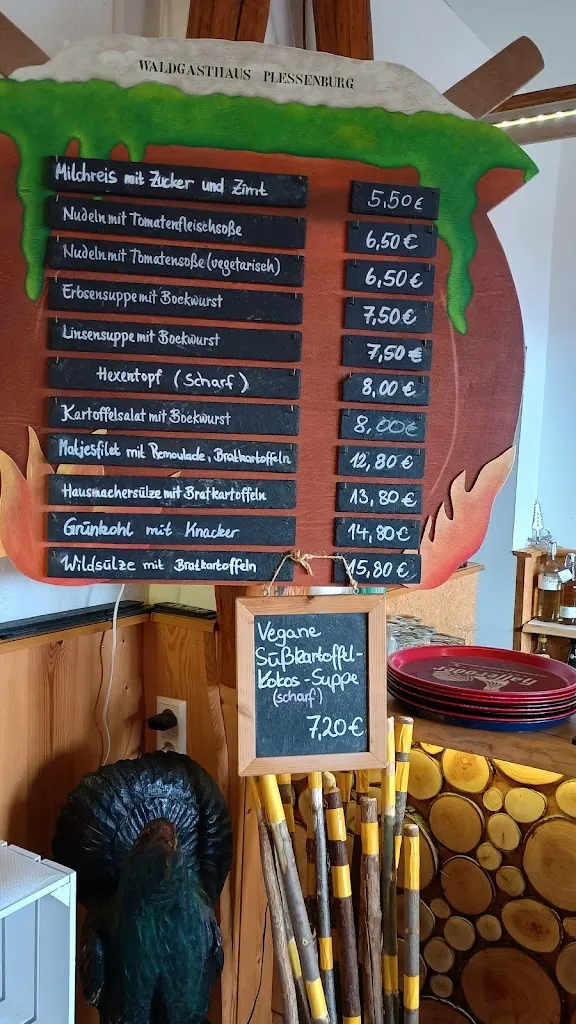 WALDGASTHAUS PLESSENBURG
Milchreis mit Zucker und Zimt 5,50 €
Nudeln mit Tomatenfleischsoße 6,50 €
Nudeln mit Tomatensoße (vegetarisch) 6,50 €
Erbsensuppe mit Bockwurst 7,50 €
Linsensuppe mit Bockwurst 7,50 €
Hexentopf (Scharf) 8,00 €
Kartoffelsalat mit Bockwurst 8,00 €
Matjesfilet mit Remoulade, Bratkartoffeln 12,80 €
Hausmachersülze mit Bratkartoffeln 13,80 €
Grünkohl mit Knacker 14,80 €
Wildsülze mit Bratkartoffeln 15,80 €
Vegane
Süßkartoffel-
Kokos-Suppe
(scharf)
7,20 €
Hasseröder